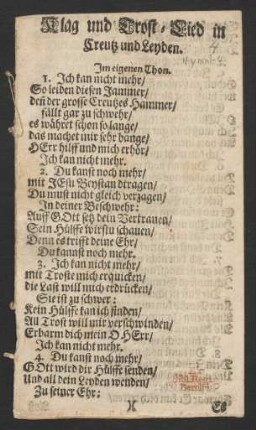 Klag und Trost-Lied in
Creutz und Leyden.
Im eigenen Thon.
1. Ich kan nicht mehr/
So leiden diesen Jammer/
deñ der grosse Creutzes Hammer/
fällt gar zu schwehr/
es währet schon so lange/
das machet mir sehr bange/
HErr hilff und mich erhör/
Ich kan nicht mehr.
2. Du kanst noch mehr/
mit JEsu Beystan dtragen/
Du must nicht gleich verzagen/
In deiner Beschwehr:
Auff GOtt setz dein Vertrauen/
Sein Hülffe wirstu schauen/
Denn es trifft deine Ehr/
Du kanst noch mehr.
3. Ich kan nicht mehr/
mit Troste mich erquicken/
die Last will mich erdrücken/
Sie ist zu schwer:
Kein Hülffe kan ich finden/
All Trost will mir verschwinden/
Erbarm dich mein O HErr/
Ich kan nicht mehr.
4. Du kanst noch mehr/
GOtt wird dir Hülffe senden/
Und all dein Leyden wenden/
Zu seiner Ehr:
)( Es